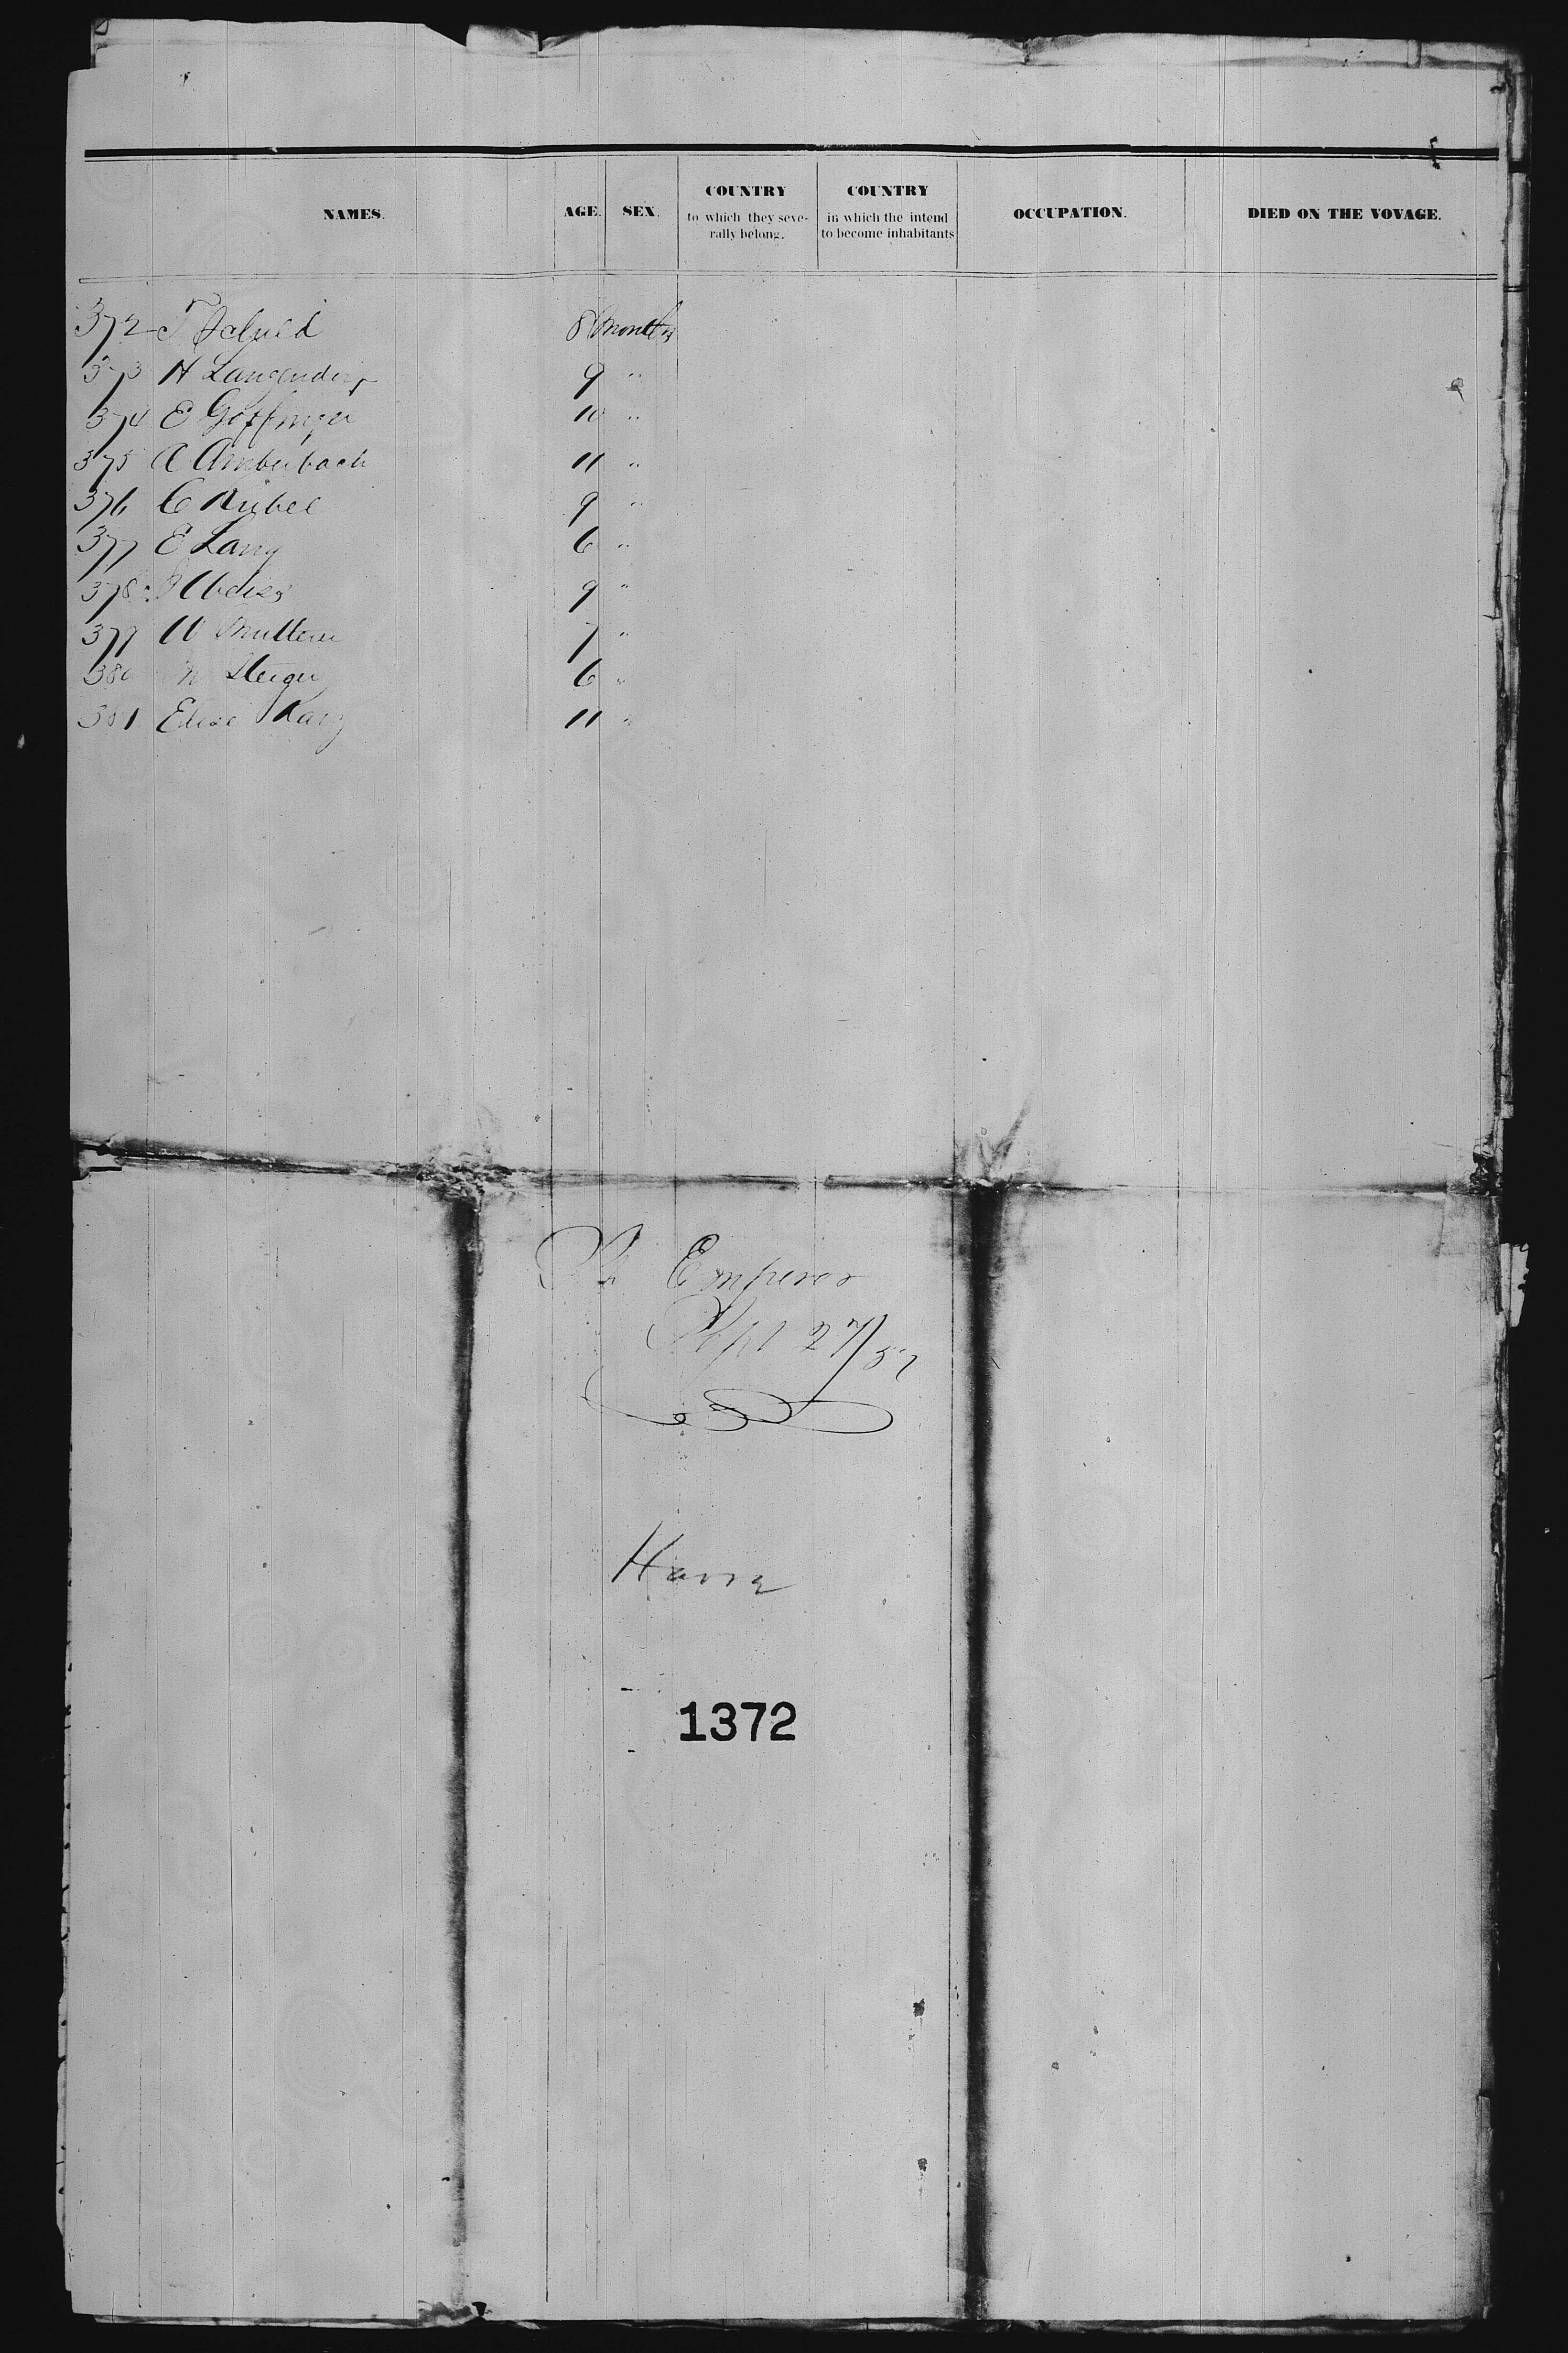 NAMES. AGE. SEX. COUNTRY to which they seve-rally belong. COUNTRY in which the intend to become inhabitants OCCUPATION. DIED ON THE VOVAGE.
372 T Schuld 8 months
373 H Langendorf 9 "
374 E Goffinger 10 "
375 A Amberbach 11 "
376 C Kübel 9 "
377 E Lang 6 "
378 9 "
379 W 7 "
380 Steiger 6 "
381 Elise Karg 11 "
Sh Emperor
Sept 27/52
Havre
1372